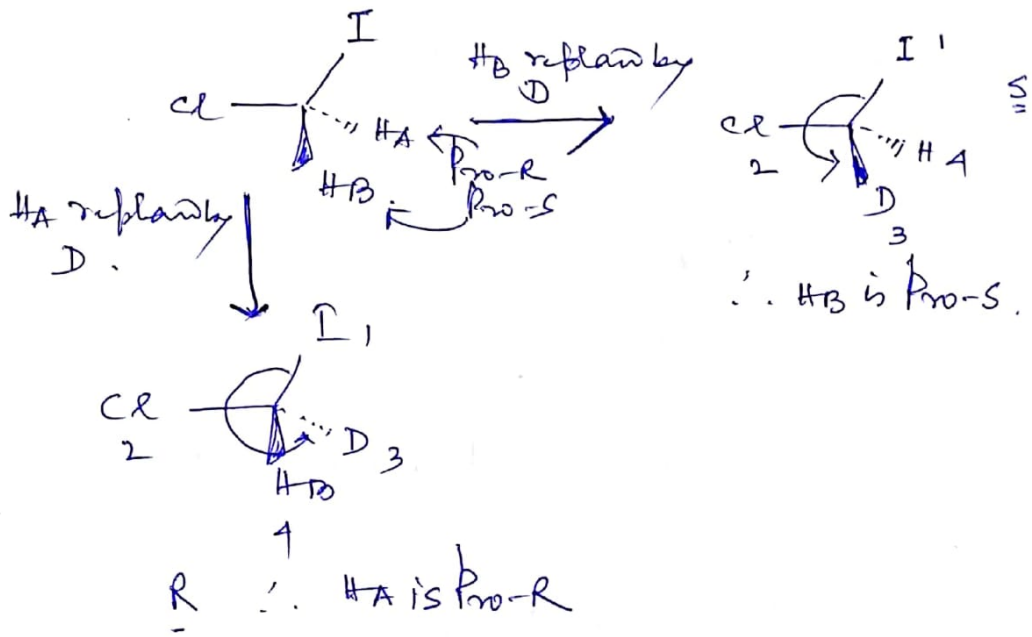 I
Cl
HA
HB
Pro-R
Pro-S
HB replaced by
D
I 1
Cl
2
H 4
D
3
S
∴ HB is Pro-S.
HA replaced by
D.
I 1
Cl
2
D 3
HB
4
R ∴ HA is Pro-R